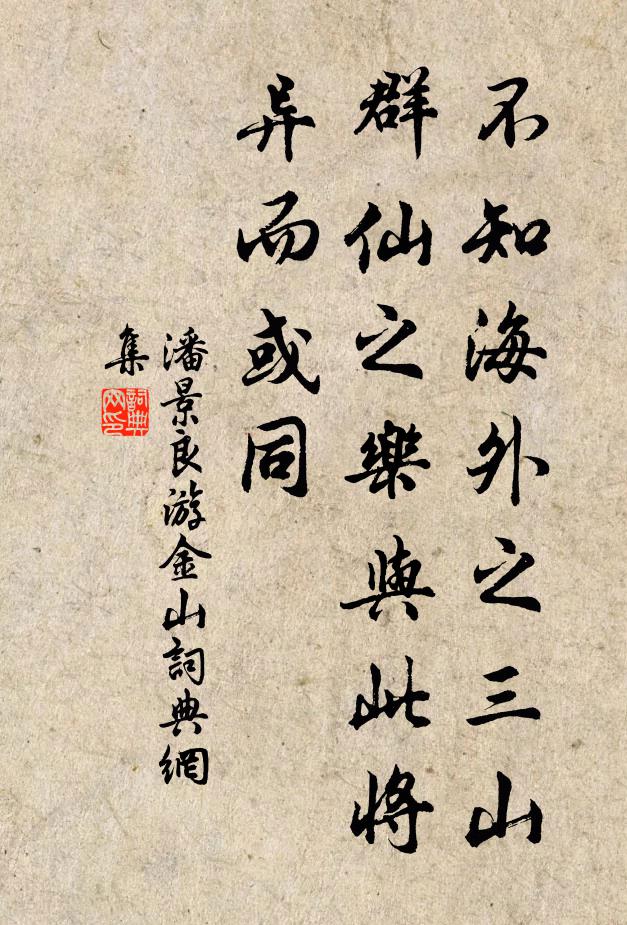 不知海外之三山
群仙之樂與此將
异而或同
潘景良游金山詞典網
集
詞典網印